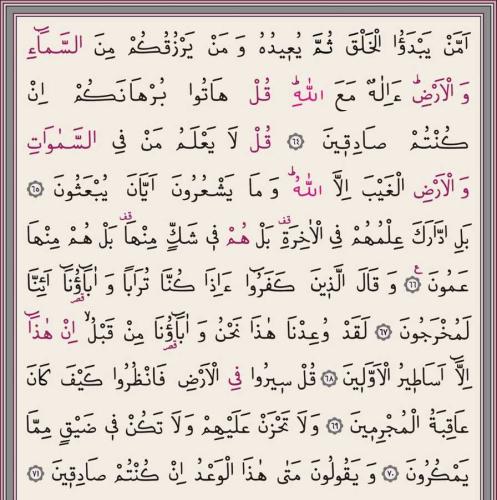 اَمَّنْ يَبْدَؤُا الْخَلْقَ ثُمَّ يُعٖيدُهُ وَ مَنْ يَرْزُقُكُمْ مِنَ السَّمَٓاءِ
وَ الْاَرْضِؕ ءَاِلٰهٌ مَعَ اللّٰهِؕ قُلْ هَاتُوا بُرْهَانَكُمْ اِنْ
كُنْتُمْ صَادِقٖينَ ﴿٦٤﴾ قُلْ لَا يَعْلَمُ مَنْ فِى السَّمٰوَاتِ
وَ الْاَرْضِ الْغَيْبَ اِلَّا اللّٰهُؕ وَ مَا يَشْعُرُونَ اَيَّانَ يُبْعَثُونَ ﴿٦٥﴾
بَلِ ادّٰارَكَ عِلْمُهُمْ فِى الْاٰخِرَةِ قف بَلْ هُمْ فٖى شَكٍّ مِنْهَا قف بَلْ هُمْ مِنْهَا
عَمُونَ ﴿٦٦﴾ ع وَ قَالَ الَّذٖينَ كَفَرُٓوا ءَاِذَا كُنَّا تُرَابًا وَ اٰبَٓاؤُنَٓا اَئِنَّا
لَمُخْرَجُونَ ﴿٦٧﴾ لَقَدْ وُعِدْنَا هٰذَا نَحْنُ وَ اٰبَٓاؤُنَا مِنْ قَبْلُۙ اِنْ هٰذَٓا
اِلَّٓا اَسَاطٖيرُ الْاَوَّلٖينَ ﴿٦٨﴾ قُلْ سٖيرُوا فِى الْاَرْضِ فَانْظُرُوا كَيْفَ كَانَ
عَاقِبَةُ الْمُجْرِمٖينَ ﴿٦٩﴾ وَلَا تَحْزَنْ عَلَيْهِمْ وَلَا تَكُنْ فٖى ضَيْقٍ مِمَّا
يَمْكُرُونَ ﴿٧٠﴾ وَ يَقُولُونَ مَتٰى هٰذَا الْوَعْدُ اِنْ كُنْتُمْ صَادِقٖينَ ﴿٧١﴾